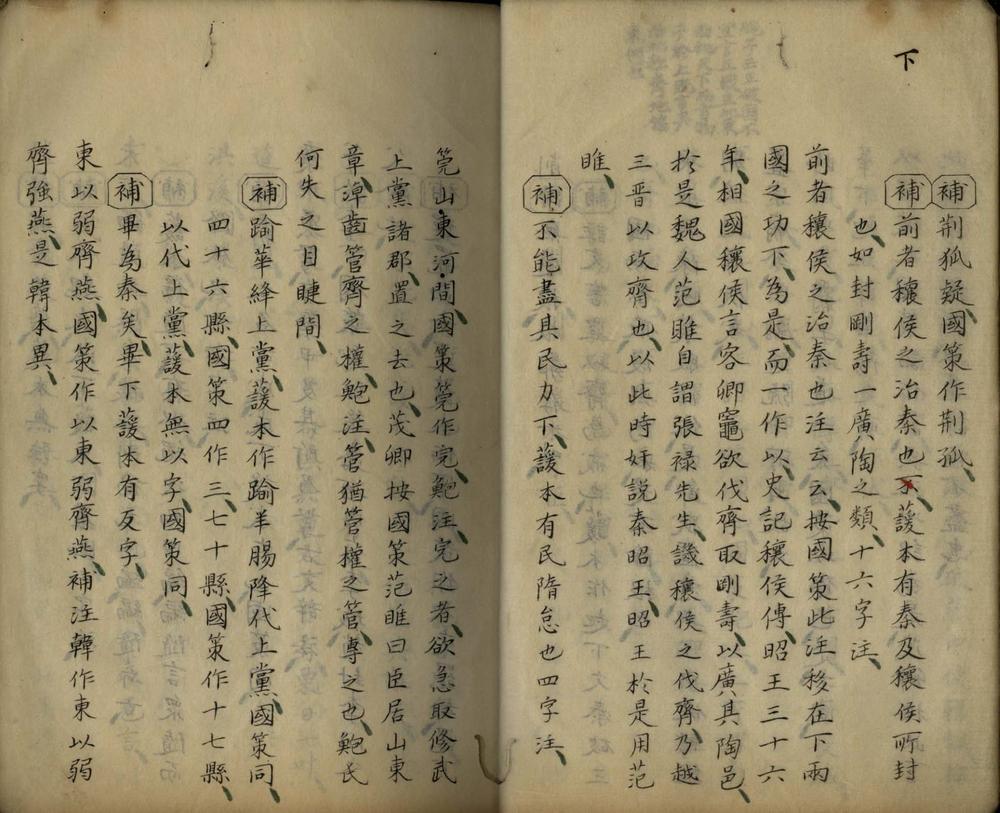 下
補荆狐疑國策作荆孤
補前者穰侯之治秦也下諼本有秦及穰侯所封
也如封剛壽一廣陶之類十六字注
前者穰侯之治秦也注云云按國策此注移在下兩
國之功下為是而一作以史記穰侯傳昭王三十六
年相國穰侯言客卿竈欲伐齊取剛壽以廣其陶邑
於是魏人范睢自謂張禄先生譏穰侯之伐齊乃越
三晋以攻齊也以此時奸説秦昭王昭王於是用范
睢
補不能盡其民力下諼本有民隋怠也四字注
筦山東河間國策筦作完鮑注完之者欲急取修武
上黨諸郡置之去也茂卿按國策范睢曰臣居山東
章淖齒管齊之權鮑注管猶管權之管專之也鮑氏
何失之目睫間
補踰華絳上黨諼本作踰羊腸降代上黨國策同
四十六縣國策四作三七十縣國策作十七縣
以代上黨諼本無以字國策同
補畢為秦矣畢下諼本有反字
東以弱齊燕國策作以東弱齊燕補注韓作東以弱
齊強燕是韓本異